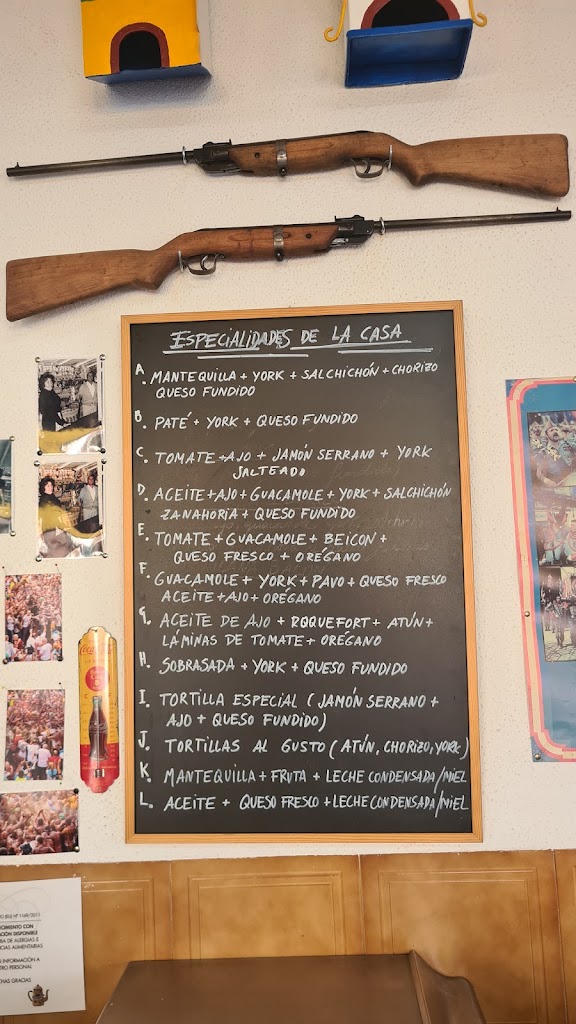 ESPECIALIDADES DE LA CASA
A. MANTEQUILLA + YORK + SALCHICHÓN + CHORIZO
QUESO FUNDIDO
B. PATÉ + YORK + QUESO FUNDIDO
C. TOMATE + AJO + JAMÓN SERRANO + YORK
SALTEADO
D. ACEITE + AJO + GUACAMOLE + YORK + SALCHICHÓN
ZANAHORIA + QUESO FUNDIDO
E. TOMATE + GUACAMOLE + BEICON +
QUESO FRESCO + ORÉGANO
F. GUACAMOLE + YORK + PAVO + QUESO FRESCO
ACEITE + AJO + ORÉGANO
G. ACEITE DE AJO + ROQUEFORT + ATÚN +
LÁMINAS DE TOMATE + ORÉGANO
H. SOBRASADA + YORK + QUESO FUNDIDO
I. TORTILLA ESPECIAL (JAMÓN SERRANO +
AJO + QUESO FUNDIDO)
J. TORTILLAS AL GUSTO (ATÚN, CHORIZO, YORK)
K. MANTEQUILLA + FRUTA + LECHE CONDENSADA/MIEL
L. ACEITE + QUESO FRESCO + LECHE CONDENSADA/MIEL
Coca-Cola
Nº 1169/2011
CON
DISPONIBLE
DE ALERGIAS E
ALIMENTARIAS
INFORMACIÓN A
PERSONAL
GRACIAS